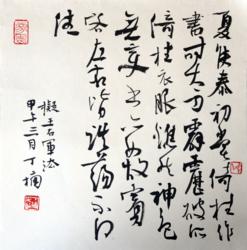 夏侯泰初嘗倚柱作
書時大雨霹靂破所
倚柱衣服焦然神色
無變書亦如故賓
客左右皆跌蕩不得
住
擬右軍法
甲午三月丁